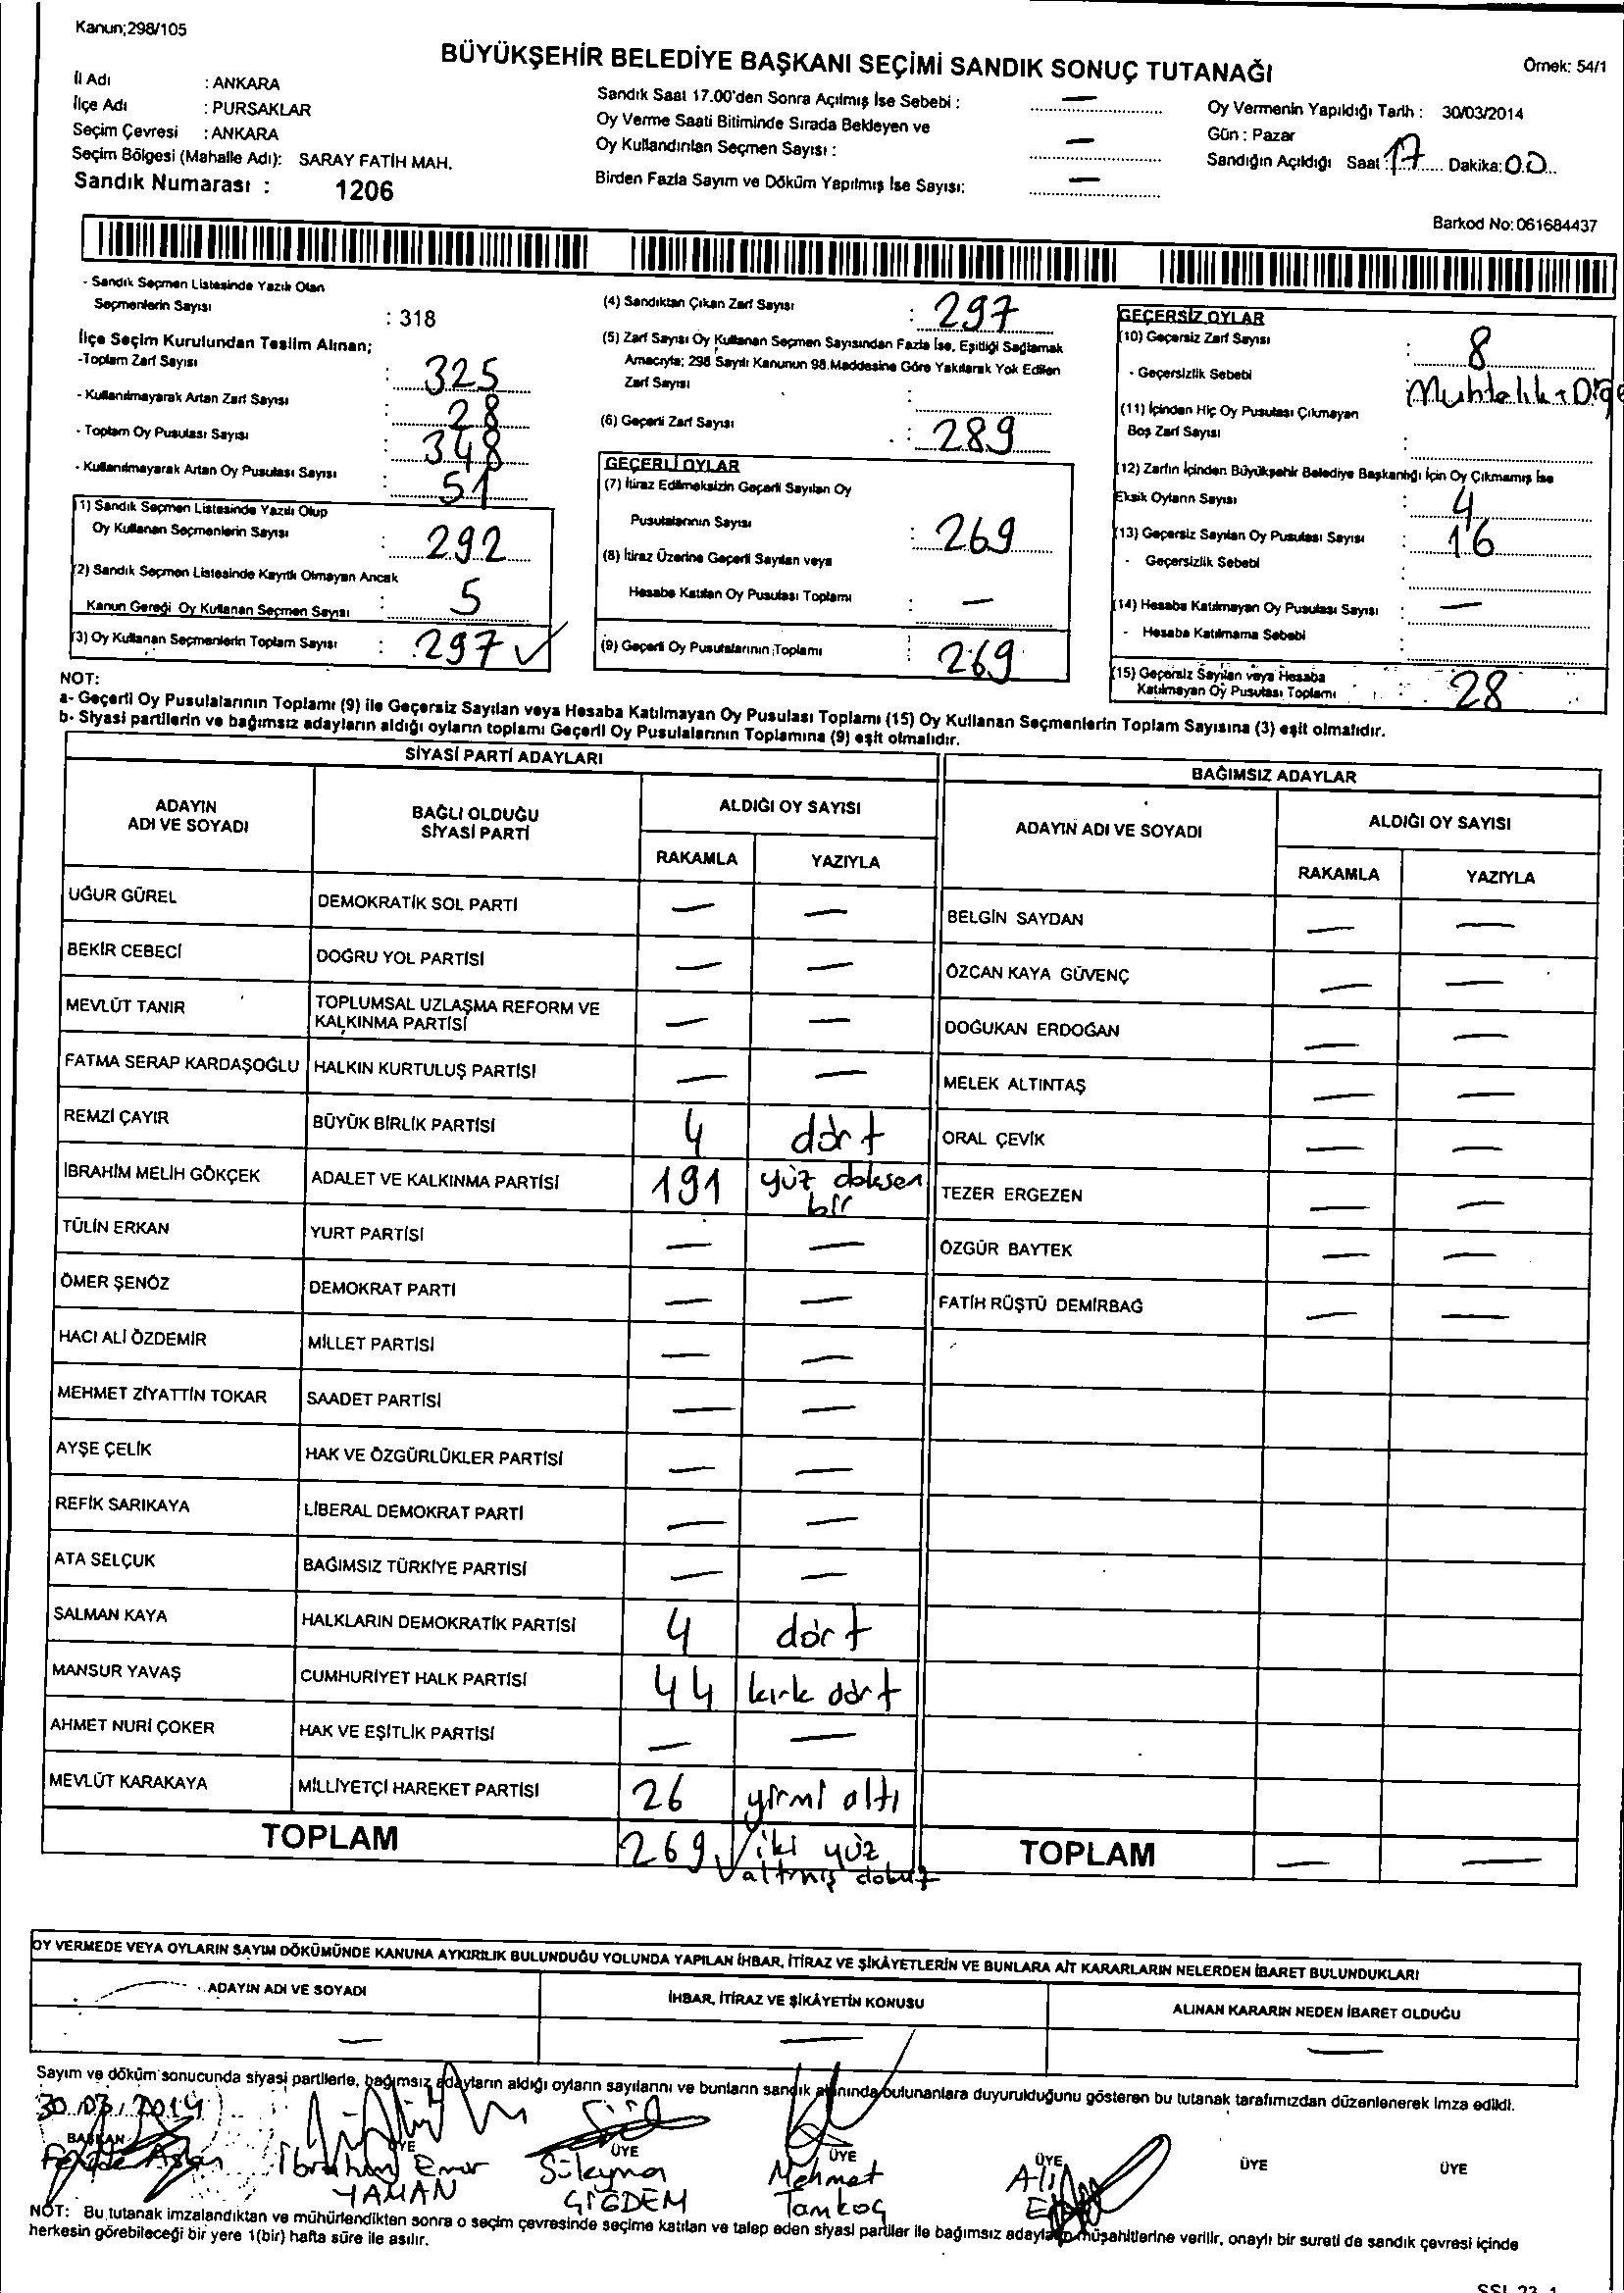 Kanun;298/105
BÜYÜKŞEHİR BELEDİYE BAŞKANI SEÇİMİ SANDIK SONUÇ TUTANAĞI
Örnek: 54/1
İl Adı : ANKARA
İlçe Adı : PURSAKLAR
Seçim Çevresi : ANKARA
Seçim Bölgesi (Mahalle Adı): SARAY FATİH MAH.
Sandık Numarası : 1206
Sandık Saat 17.00'den Sonra Açılmış İse Sebebi : —
Oy Verme Saati Bitiminde Sırada Bekleyen ve
Oy Kullandırılan Seçmen Sayısı : —
Birden Fazla Sayım ve Döküm Yapılmış İse Sayısı: —
Oy Vermenin Yapıldığı Tarih : 30/03/2014
Gün : Pazar
Sandığın Açıldığı Saat : 17 Dakika: 00
Barkod No: 061684437
- Sandık Seçmen Listesinde Yazılı Olan
Seçmenlerin Sayısı : 318
İlçe Seçim Kurulundan Teslim Alınan;
-Toplam Zarf Sayısı : 325
- Kullanılmayarak Artan Zarf Sayısı : 28
- Toplam Oy Pusulası Sayısı : 348
- Kullanılmayarak Artan Oy Pusulası Sayısı : 51
(1) Sandık Seçmen Listesinde Yazılı Olup
Oy Kullanan Seçmenlerin Sayısı : 292
(2) Sandık Seçmen Listesinde Kayıtlı Olmayan Ancak
Kanun Gereği Oy Kullanan Seçmen Sayısı : 5
(3) Oy Kullanan Seçmenlerin Toplam Sayısı : 297 ✓
(4) Sandıktan Çıkan Zarf Sayısı : 297
(5) Zarf Sayısı Oy Kullanan Seçmen Sayısından Fazla İse, Eşitliği Sağlamak
Amacıyla; 298 Sayılı Kanunun 98.Maddesine Göre Yakılarak Yok Edilen
Zarf Sayısı :
(6) Geçerli Zarf Sayısı : 289
GEÇERLİ OYLAR
(7) İtiraz Edilmeksizin Geçerli Sayılan Oy
Pusulalarının Sayısı : 269
(8) İtiraz Üzerine Geçerli Sayılan veya
Hesaba Katılan Oy Pusulası Toplamı : —
(9) Geçerli Oy Pusulalarının Toplamı : 269
GEÇERSİZ OYLAR
(10) Geçersiz Zarf Sayısı : 8
- Geçersizlik Sebebi :
(11) İçinden Hiç Oy Pusulası Çıkmayan
Boş Zarf Sayısı :
(12) Zarfın İçinden Büyükşehir Belediye Başkanlığı İçin Oy Çıkmamış İse
Eksik Oyların Sayısı : 4
(13) Geçersiz Sayılan Oy Pusulası Sayısı : 16
- Geçersizlik Sebebi :
(14) Hesaba Katılmayan Oy Pusulası Sayısı : —
- Hesaba Katılmama Sebebi :
(15) Geçersiz Sayılan veya Hesaba
Katılmayan Oy Pusulası Toplamı : 28
NOT:
a- Geçerli Oy Pusulalarının Toplamı (9) ile Geçersiz Sayılan veya Hesaba Katılmayan Oy Pusulası Toplamı (15) Oy Kullanan Seçmenlerin Toplam Sayısına (3) eşit olmalıdır.
b- Siyasi partilerin ve bağımsız adayların aldığı oyların toplamı Geçerli Oy Pusulalarının Toplamına (9) eşit olmalıdır.
SİYASİ PARTİ ADAYLARI
ADAYIN ADI VE SOYADI
BAĞLI OLDUĞU SİYASİ PARTİ
ALDIĞI OY SAYISI
RAKAMLA YAZIYLA
UĞUR GÜREL DEMOKRATİK SOL PARTİ — —
BEKİR CEBECİ DOĞRU YOL PARTİSİ — —
MEVLÜT TANIR TOPLUMSAL UZLAŞMA REFORM VE KALKINMA PARTİSİ — —
FATMA SERAP KARDAŞOĞLU HALKIN KURTULUŞ PARTİSİ — —
REMZİ ÇAYIR BÜYÜK BİRLİK PARTİSİ 4 dört
İBRAHİM MELİH GÖKÇEK ADALET VE KALKINMA PARTİSİ 191 yüz doksan bir
TÜLİN ERKAN YURT PARTİSİ — —
ÖMER ŞENÖZ DEMOKRAT PARTİ — —
HACI ALİ ÖZDEMİR MİLLET PARTİSİ — —
MEHMET ZİYATTİN TOKAR SAADET PARTİSİ — —
AYŞE ÇELİK HAK VE ÖZGÜRLÜKLER PARTİSİ — —
REFİK SARIKAYA LİBERAL DEMOKRAT PARTİ — —
ATA SELÇUK BAĞIMSIZ TÜRKİYE PARTİSİ — —
SALMAN KAYA HALKLARIN DEMOKRATİK PARTİSİ 4 dört
MANSUR YAVAŞ CUMHURİYET HALK PARTİSİ 44 kırk dört
AHMET NURİ ÇOKER HAK VE EŞİTLİK PARTİSİ — —
MEVLÜT KARAKAYA MİLLİYETÇİ HAREKET PARTİSİ 26 yirmi altı
TOPLAM 269 ✓ iki yüz altmış dokuz
BAĞIMSIZ ADAYLAR
ADAYIN ADI VE SOYADI
ALDIĞI OY SAYISI
RAKAMLA YAZIYLA
BELGİN SAYDAN — —
ÖZCAN KAYA GÜVENÇ — —
DOĞUKAN ERDOĞAN — —
MELEK ALTINTAŞ — —
ORAL ÇEVİK — —
TEZER ERGEZEN — —
ÖZGÜR BAYTEK — —
FATİH RÜŞTÜ DEMİRBAĞ — —
TOPLAM — —
OY VERMEDE VEYA OYLARIN SAYIM DÖKÜMÜNDE KANUNA AYKIRILIK BULUNDUĞU YOLUNDA YAPILAN İHBAR, İTİRAZ VE ŞİKÂYETLERİN VE BUNLARA AİT KARARLARIN NELERDEN İBARET BULUNDUKLARI
ADAYIN ADI VE SOYADI İHBAR, İTİRAZ VE ŞİKÂYETİN KONUSU ALINAN KARARIN NEDEN İBARET OLDUĞU
— — —
Sayım ve döküm sonucunda siyasi partilerle, bağımsız adayların aldığı oyların sayılarını ve bunların sandık alanında bulunanlara duyurulduğunu gösteren bu tutanak tarafımızdan düzenlenerek imza edildi.
30.03.2014
BAŞKAN ÜYE ÜYE ÜYE ÜYE ÜYE ÜYE
Aslan
İbrahim Emir YAMAN
Süleyman ÇİĞDEM
Mehmet Tamkoç
Ali
NOT: Bu tutanak imzalandıktan ve mühürlendikten sonra o seçim çevresinde seçime katılan ve talep eden siyasi partiler ile bağımsız adayların müşahitlerine verilir, onaylı bir sureti de sandık çevresi içinde
herkesin görebileceği bir yere 1(bir) hafta süre ile asılır.